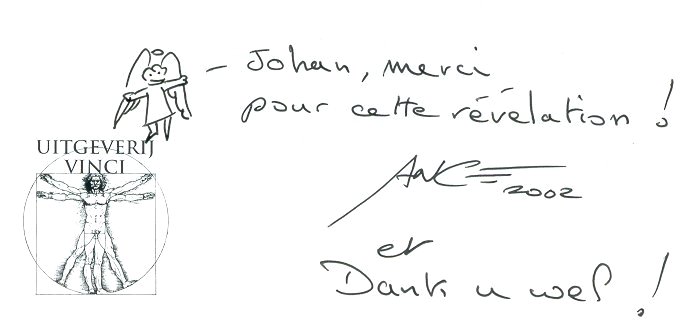 – Johan, merci
pour cette révélation !
UITGEVERIJ
VINCI
2002
et
Dank u wel !